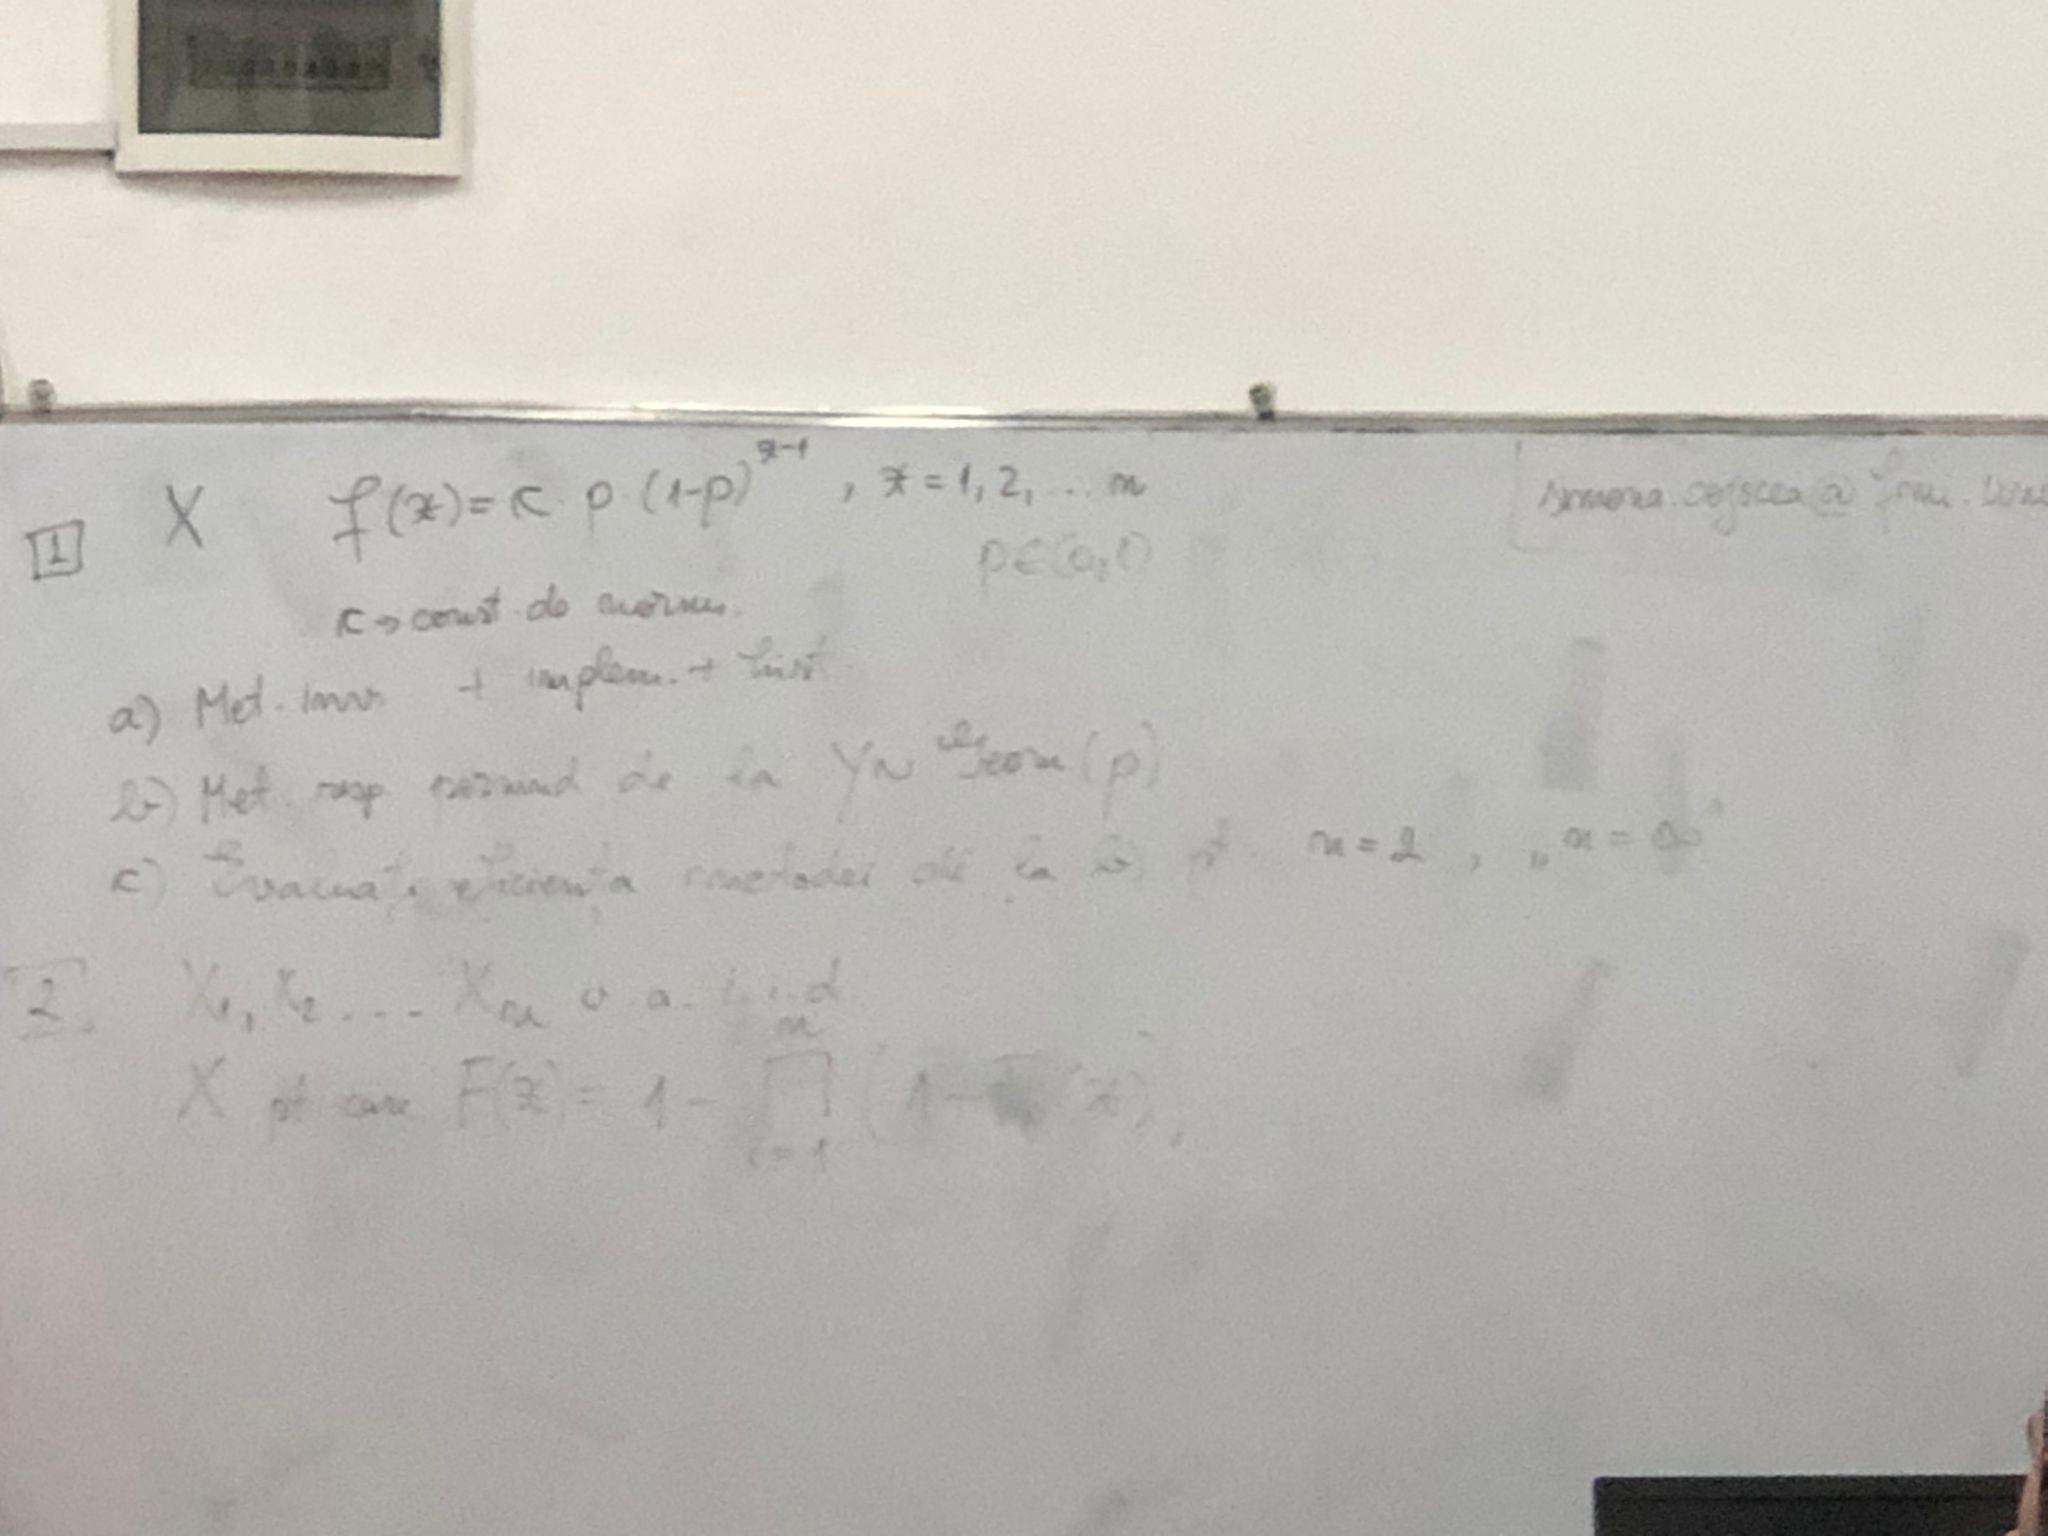 1 X f(x) = c · p · (1-p)^{x-1}, x = 1, 2, ... n
p ∈ (0,1)
c → const. de norm.
a) Met. inv. + implem. + hist.
b) Met. resp. pornind de la Y ~ Geom(p)
c) Evaluați eficiența metodei de la b) pt. n = 2, „n = ∞"
2. X1, X2 ... Xn v.a. i.i.d
X pt care F(x) = 1 - ∏_{i=1}^{n} (1 - (x)),